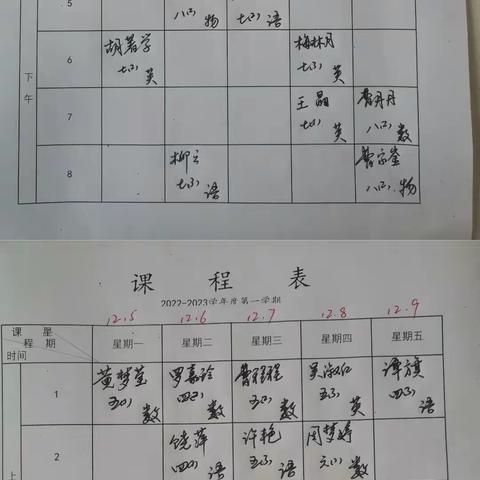 5
八(2) 物
七(3) 语
下午
6
胡著学
七(3) 英
梅林月
七(3) 英
7
王晶
七(4) 英
曹月月
八(2) 数
8
柳云
七(3) 语
八(2) 物
课程表
2022-2023学年度第一学期
12.5 12.6 12.7 12.8 12.9
课程 星期
时间
星期一 星期二 星期三 星期四 星期五
上
1
黄梦莹
五(1) 数
罗嘉玲
四(2) 数
曹程程
五(2) 数
吴淑仪
五(3) 英
谭旗
四(3) 语
2
饶萍
四(1) 语
许艳
五(3) 语
周梦婷
六(1) 数